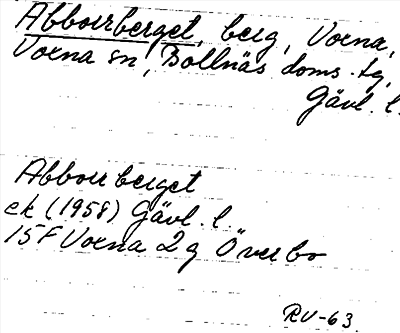 Abborrberget, berg, Voxna,
Voxna sn, Bollnäs doms. tg,
Gävl. l.
Abborrberget
ek (1958) Gävl. l.
15F Voxna 2g Överbo
RV-63